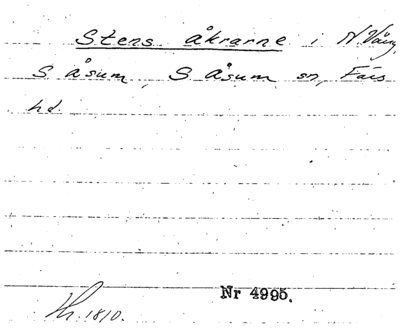 Stens åkrarne i N. Vång,
S åsum, S åsum sn, Färs
hd.
Nr 4995.
Hh. 1810.